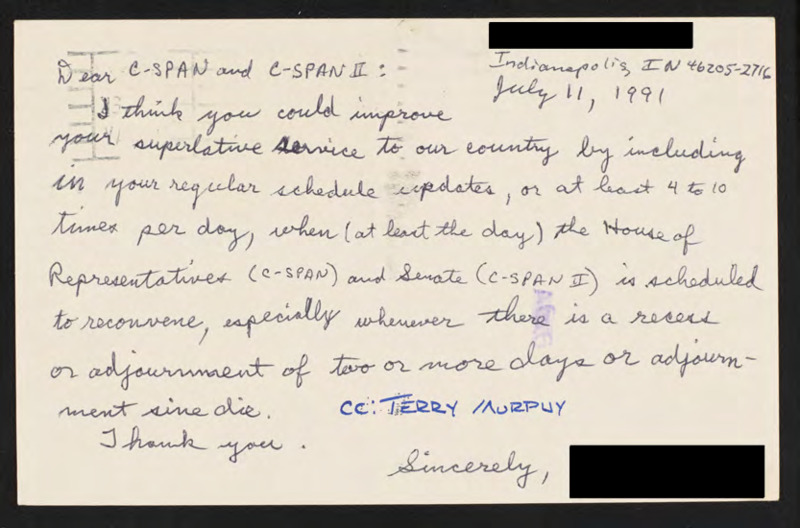 Indianapolis, IN 46205-2716
July 11, 1991
Dear C-SPAN and C-SPAN II :
I think you could improve
your superlative service to our country by including
in your regular schedule updates, or at least 4 to 10
times per day, when (at least the day) the House of
Representatives (C-SPAN) and Senate (C-SPAN II) is scheduled
to reconvene, especially whenever there is a recess
or adjournment of two or more days or adjourn-
ment sine die.
CC: TERRY MURPHY
Thank you.
Sincerely,